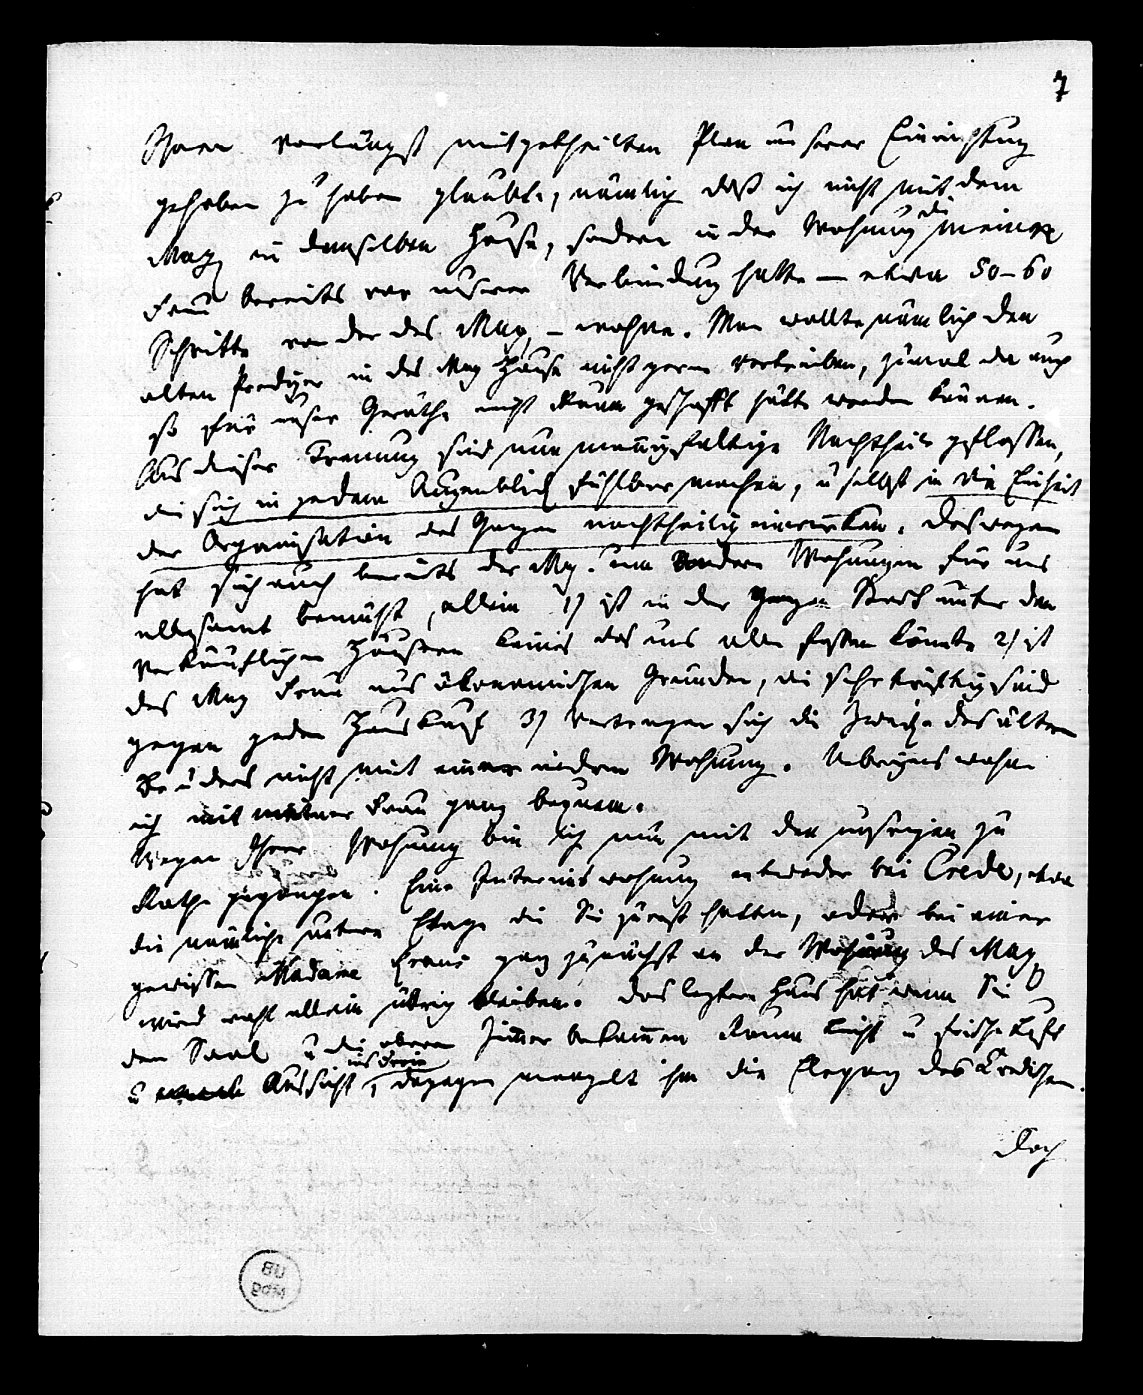 7
Ihnen vorlängst mitgetheilten Plan unserer Einrichtung
gehoben zu haben glaubte, nämlich daß ich nicht mit dem
May in demselben Hause, sondern in der Wohnung die meine
Frau bereits vor unserer Verbindung hatte — etwa 50–60
Schritte von der des May, — wohne. Man wollte nämlich den
alten Prediger in des May Hause nicht gern vertreiben, zumal da auch
so für unser Geräthe nicht Raum geschafft hätte werden können.
Aus dieser Trennung sind nun mannigfaltige Nachtheile geflossen,
die sich in jedem Augenblick fühlbar machen, u selbst in die Einheit
der Organisation des Ganzen nachtheilig einwirken. Deswegen
hat sich auch bereits der May. um andere Wohnungen für uns
allesamt bemüht, allein 1) ist in der ganzen Stadt unter den
verkäuflichen Häusern keines das uns alle fassen könnte 2) ist
des May Frau aus ökonomischen Gründen, die sehr triftig sind
gegen jeden Hauskauf 3) vertragen sich die Zwecke des ältern
Bruders nicht mit einer andern Wohnung. Uebrigens wohne
ich mit meiner Frau ganz bequem.
Wegen Ihrer Wohnung bin ich nun mit den unsrigen zu
Rathe gegangen. Eine Interimswohnung entweder bei Crede, etwa
die nämliche untere Etage die Sie zuerst hatten, oder bei einer
gewissen Madame Franc ganz zunächst an der Wohnung des May
wird wohl allein übrig bleiben. Das leztere Haus hat wenn Sie
den Saal u die obern Zimmer bekommen Raum Licht u frische Luft
u Aussicht ins Freie, dagegen mangelt ihm die Eleganz des Credischen.
Doch
UB